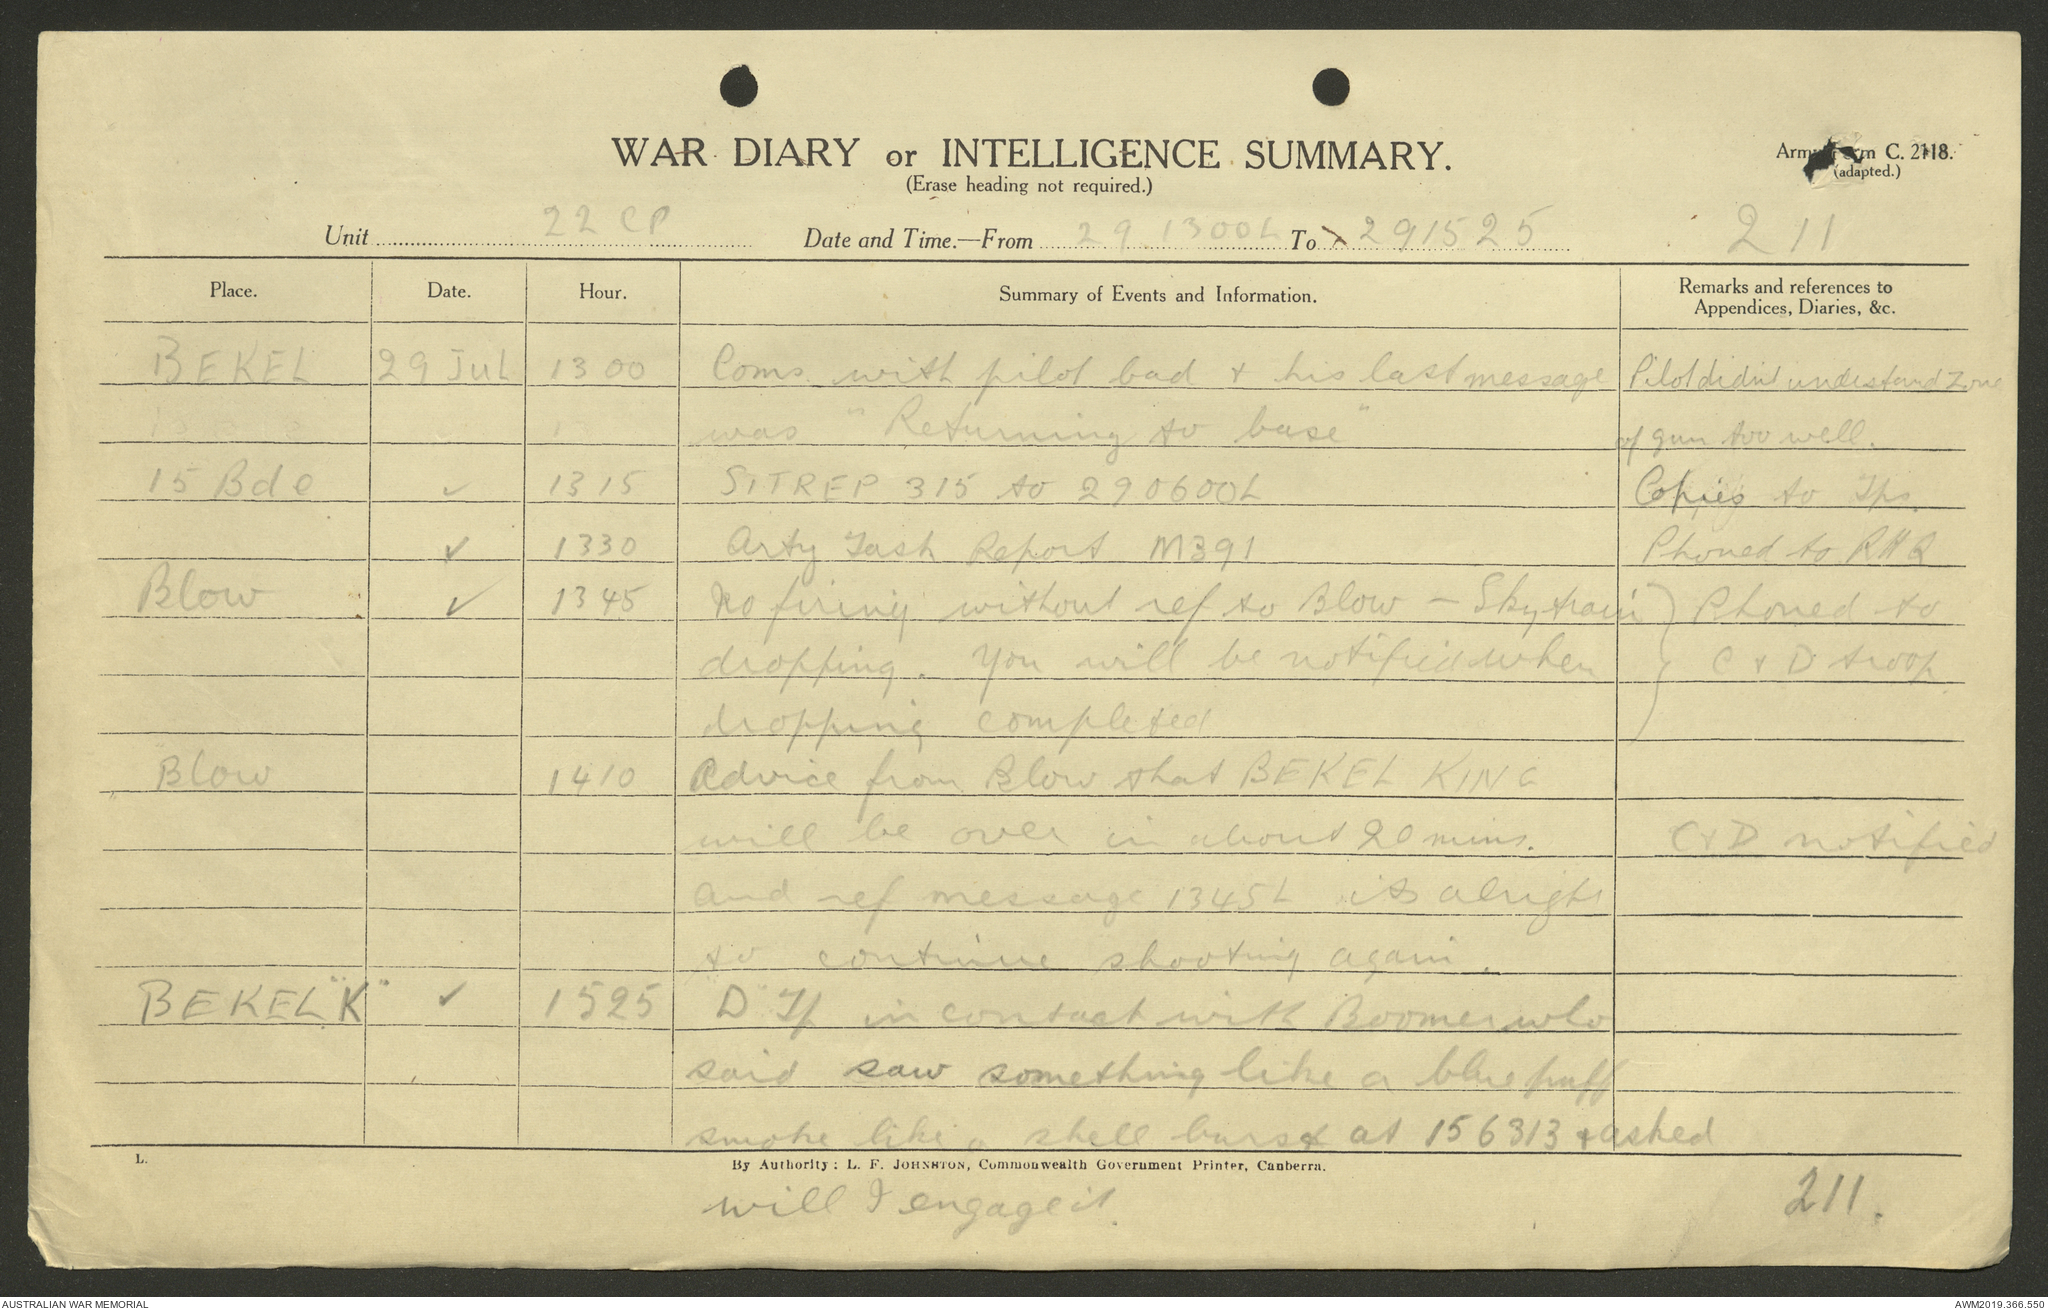 WAR DIARY or INTELLIGENCE SUMMARY.
(Erase heading not required.)
Army Form C. 2118.
(adapted.)
Unit 22 CP Date and Time.—From 29 1300L To 291525 211
Place. Date. Hour. Summary of Events and Information. Remarks and references to Appendices, Diaries, &c.
BEKEL 29 JUL 1300 Coms. with pilot bad + his last message Pilot didnt understand Zone
was "Returning to base" of gun too well.
15 Bde ✓ 1315 SITREP 315 to 290600L Copies to Tps.
✓ 1330 Arty Task Report M391 Phoned to RHQ
Blow ✓ 1345 No firing without ref to Blow - Skytrain ) Phoned to
dropping. You will be notified when ) C + D troop
dropping completed
Blow 1410 Advice from Blow that BEKEL KING
will be over in about 20 mins. C+D notified
and ref message 1345L its alright
to continue shooting again.
BEKEL "K" ✓ 1525 D Tp in contact with Boomer who
said saw something like a blue puff
smoke like a shell burst at 156313 + asked
L. By Authority: L. F. JOHNSTON, Commonwealth Government Printer, Canberra.
will I engage it.
211.
AUSTRALIAN WAR MEMORIAL AWM2019.366.550